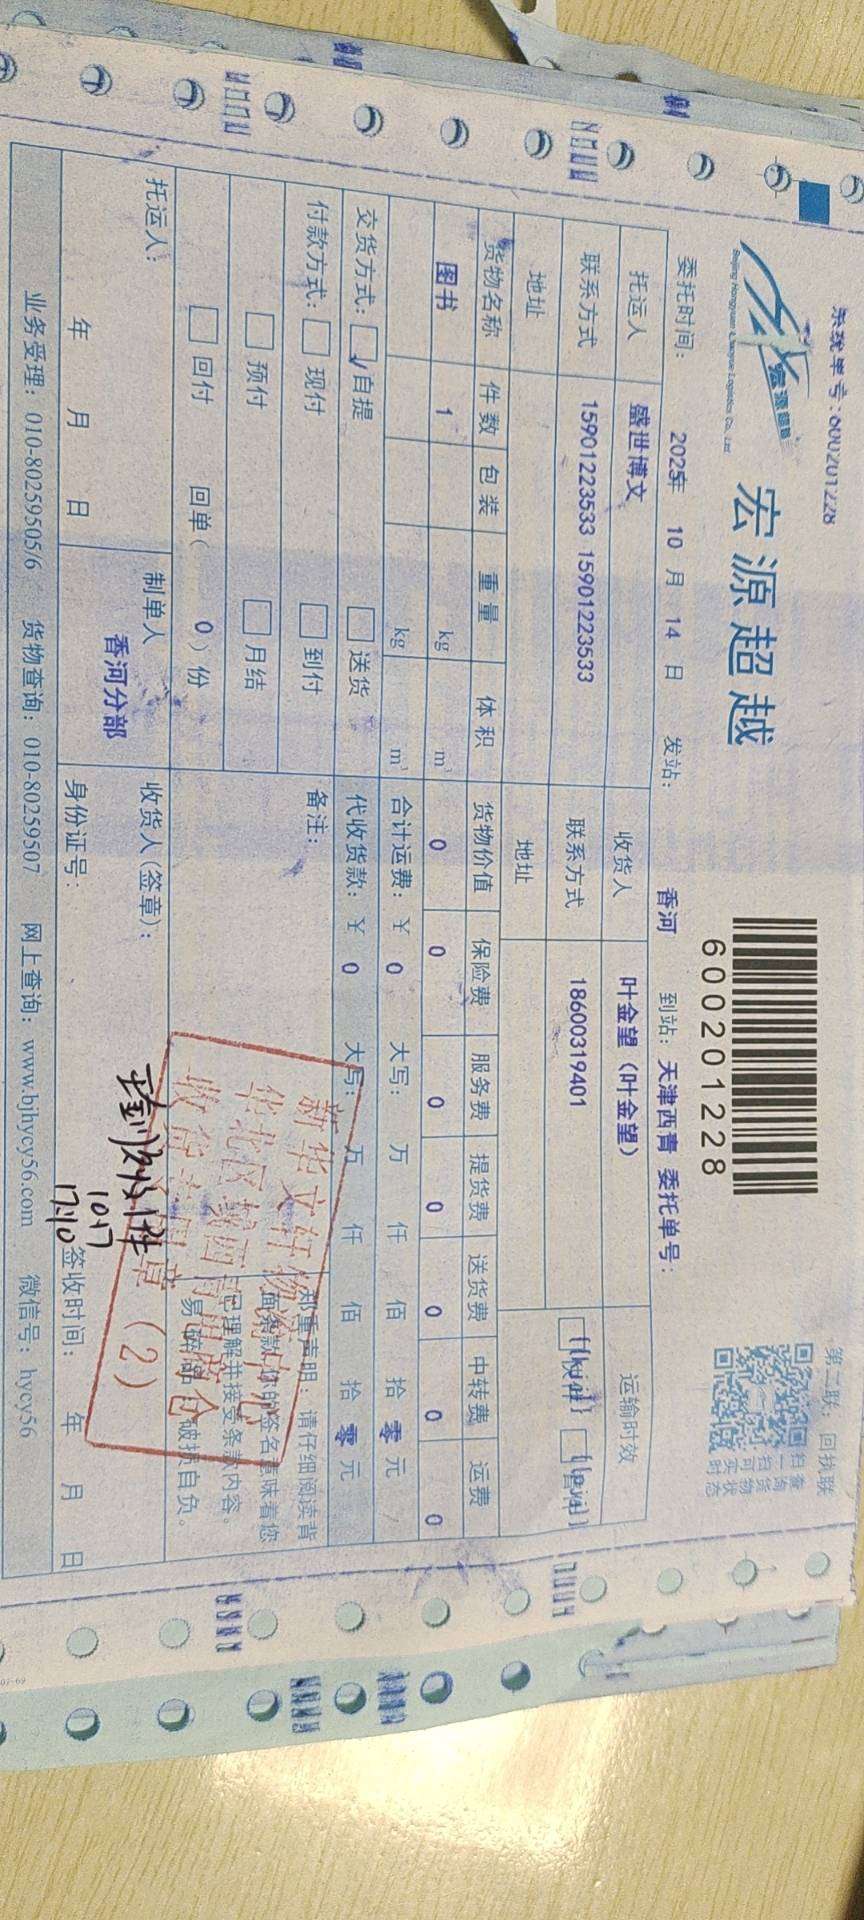 系统单号:600201228
第二联：回执联
宏源超越
Beijing Hongyuan Chaoyue Logistics Co., Ltd
600201228
扫一扫可实时
查询货物状态
委托时间： 2025年 10 月 14 日 发站： 香河 到站： 天津西青 委托单号：
托运人 盛世博文 收货人 叶金望（叶金望） 运输时效
联系方式 15901223533 15901223533 联系方式 18600319401
地址 地址
货物名称 件数 包装 重量 体积 货物价值 保险费 服务费 提货费 送货费 中转费 运费
图书 1 kg m³ 0 0 0 0 0 0 0
kg m³ 合计运费：¥ 0 大写： 万 仟 佰 拾 零 元
交货方式： 自提 送货 代收货款：¥ 0 大写： 万 仟 佰 拾 零 元
付款方式： 现付 到付 备注：
预付 月结
回付 回单( 0 ) 份
郑重声明：请仔细阅读背
面条款，你的签名意味着您
已理解并接受条款内容。
易碎品 破损自负。
新华文轩物流
华北区域西青
收货专用章（2）
托运人： 制单人 收货人(签章)：
香河分部
10.17
17:10
年 月 日 身份证号： 签收时间： 年 月 日
业务受理：010-80259505/6 货物查询：010-80259507 网上查询：www.bjhycy56.com 微信号：hycy56